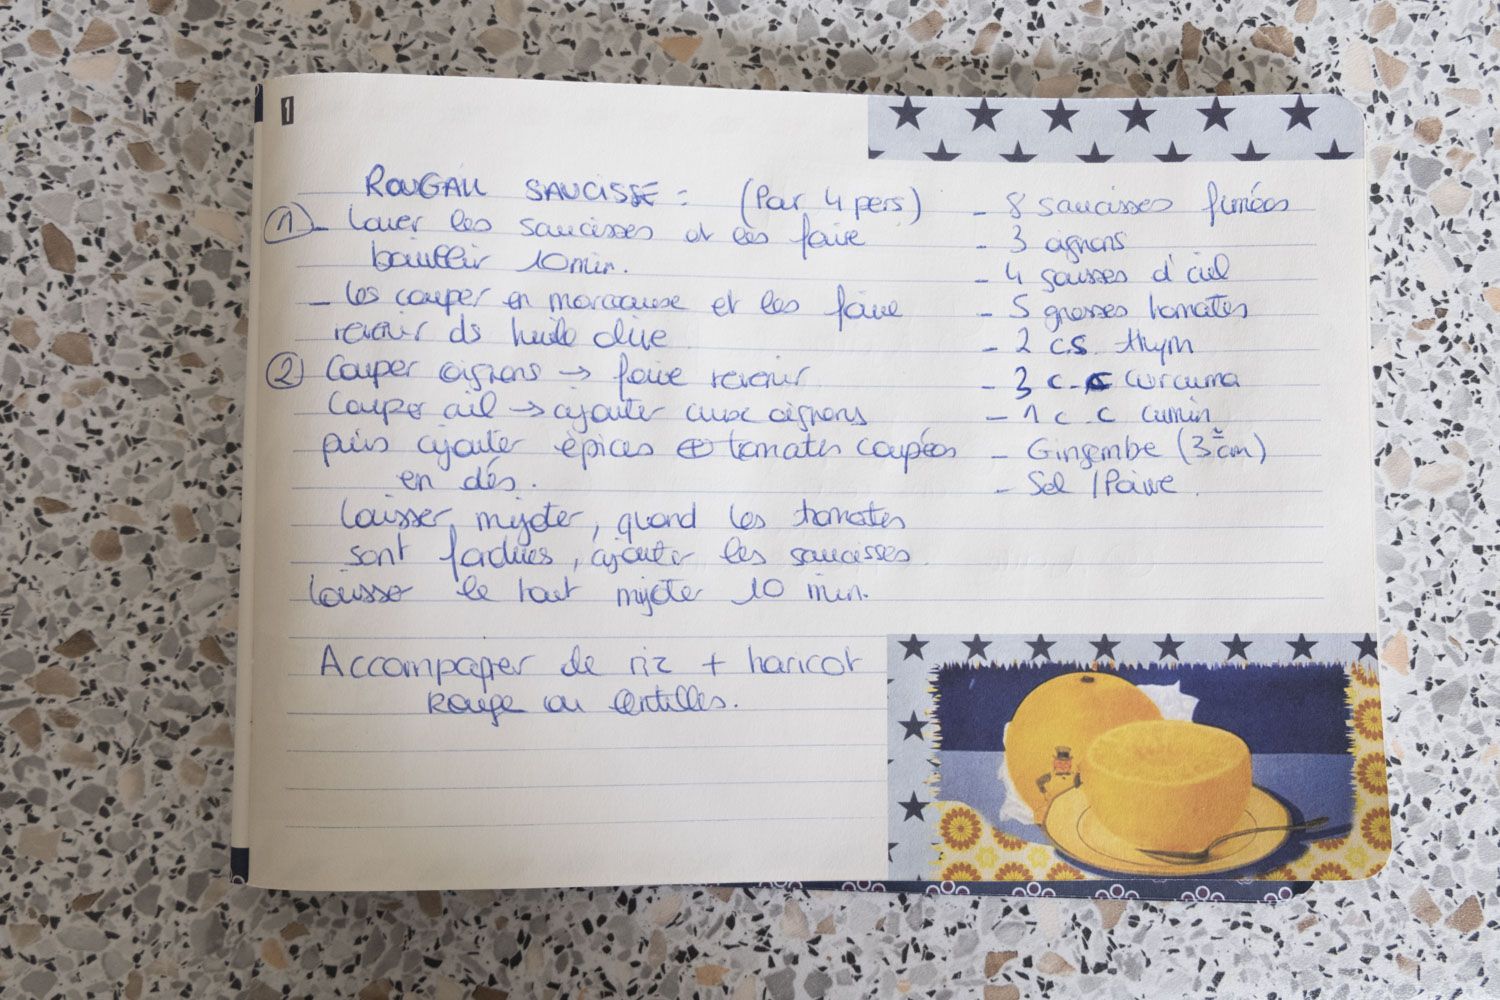 ROUGAIL SAUCISSE : (Pour 4 pers)
① - Laver les saucisses et les faire
bouillir 10 min.
- les couper en morceaux et les faire
revenir ds huile olive
② Couper oignons → faire revenir
Couper ail → ajouter aux oignons
puis ajouter épices ⊕ tomates coupées
en dés.
Laisser mijoter, quand les tomates
sont fondues, ajouter les saucisses.
Laisser le tout mijoter 10 min.
Accompagner de riz + haricot
Rouge ou lentilles.
- 8 saucisses fumées
- 3 oignons
- 4 gousses d'ail
- 5 grosses tomates
- 2 c.s. thym
- 3 c.c curcuma
- 1 c.c cumin
- Gingembe (3 cm)
- Sel / Poivre.